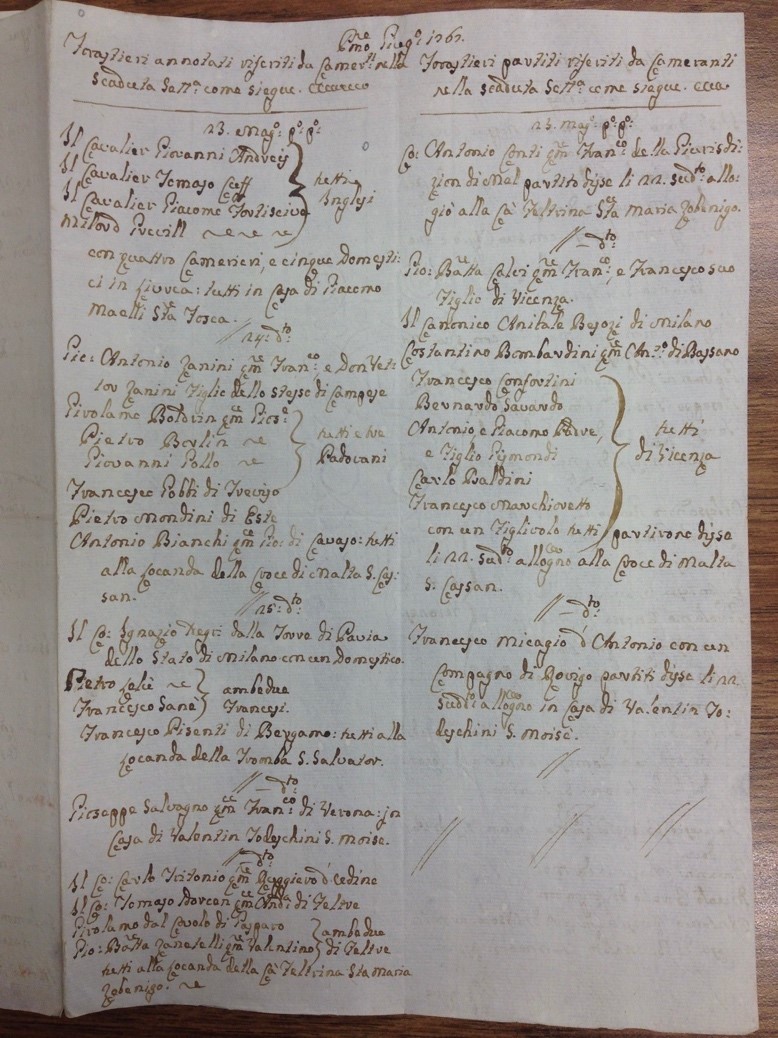 Pmo Giugo 1767.
Forastieri annotati riferiti da Camerti nella
scaduta Settna come siegue.
23. Mago: po: po:
Il Cavalier Giovanni
Il Cavalier Tomaso
Il Cavalier Giacomo
Milord
tutti
Inglesi
con quattro Camerieri, e cinque Domesti:
ci in livrea: tutti in Casa di Giacomo
Sta Fosca.
24: dto
Gio: Antonio Zanini qm Franco, e Don Vet:
tor Zanini Figlio dello stesso di Campese
Girolamo Botorin qm
Pietro
Giovanni Pollo
tutti e tre
Padovani
Francesco di Treviso
Pietro Mondini di Este
Antonio Bianchi qm Gio: di Cavaso: tutti
alla Locanda della Croce di Malta S. Cas:
san.
25: dto
Il Co: Ignazio Negri dalla Torre di Pavia
dello Stato di Milano con un Domestico.
Pietro
Francesco Sanè
ambedue
Francesi.
Francesco Pisenti di Bergamo: tutti alla
Locanda della Tromba S. Salvator.
dto
Gioseppe Salvagno qm Franco di Verona: in
Casa di Valentin Todeschini S. Moisè.
dto
Il Co: Carlo Tritonio qm Ruggiero d'Udine
Il Co: Tomaso qm di Feltre
Girolamo dal Covolo di
Gio: Batta Zanetelli qm Valentino
ambedue
di Feltre
tutti alla Locanda della Ca Feltrina Sta Maria
Zobenigo.
Forastieri partiti riferiti da Cameranti
nella scaduta Settna come siegue.
23. Mago: po: po:
Co: Antonio Conti qm Franco della Giurisdi:
zion di Mel partito disse li 22. sudto allo:
giò alla Ca Feltrina Sta Maria Zobenigo.
dto
Gio: Batta Calvi qm Franco, e Francesco suo
Figlio di Vicenza.
Il Canonico Anibale Besozi di Milano
Costantino Bombardini qm Anto: di Bassano
Francesco Confortini
Bernardo
Antonio e Giacomo
e Figlio
Carlo Baldini
Francesco Marchioretto
con un Figliolo tutti
tutti
di Vicenza
partirono disse
li 22. sudto allogno alla Croce di Malta
S. Cassan.
dto
Francesco Micagio d'Antonio con un
Compagno di Rovigo partiti disse li 22
sudto allogno in Casa di Valentin To:
deschini S. Moisè.